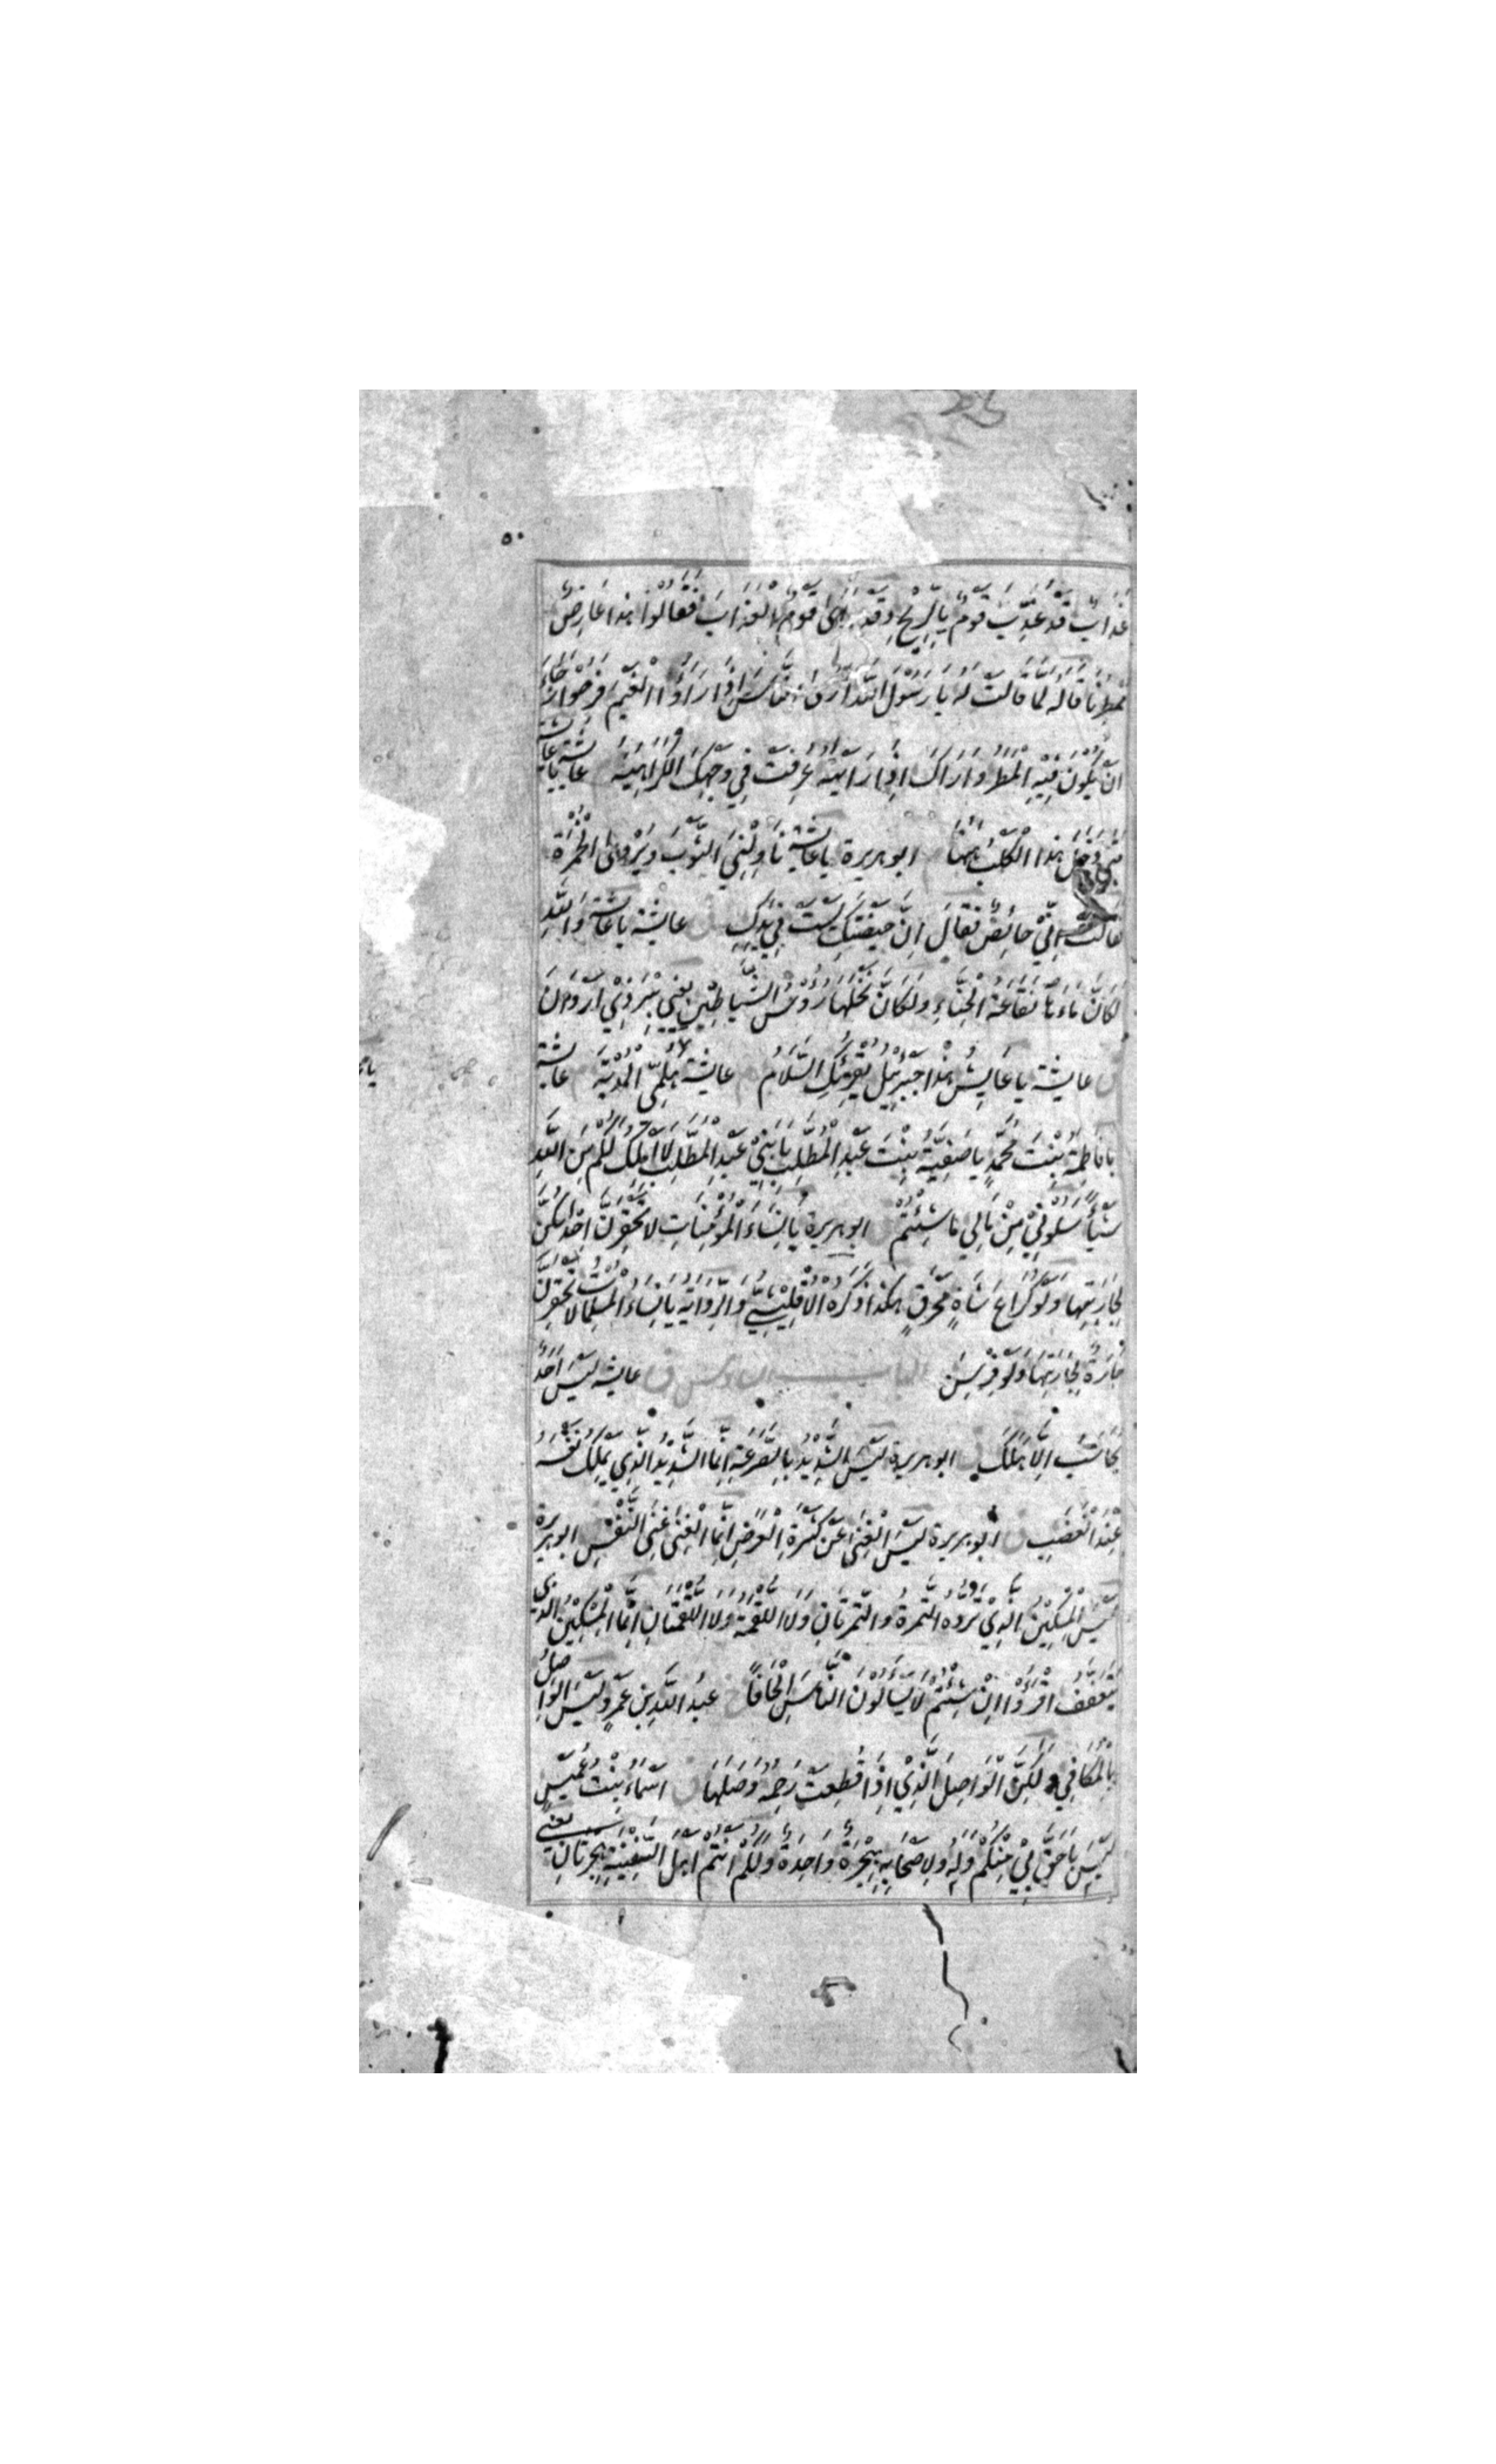 عَذَابٌ قَدْ عُذِّبَ قَوْمٌ بِالرِّيْحِ وَقَدْ رَأَى قَوْمٌ الْعَذَابَ فَقَالُوْا هٰذَا عَارِضٌ
مُمْطِرُنَا قَالَهُ لَمَّا قَالَتْ لَهُ يَا رَسُوْلَ اللهِ أَرَى النَّاسَ اِذَا رَأَوُا الْغَيْمَ فَرِحُوْا رَجَاءَ
اَنْ يَكُوْنَ فِيْهِ الْمَطَرُ وَاَرَاكَ اِذَا رَاَيْتَهُ عُرِفَتْ فِي وَجْهِكَ الْكَرَاهِيَةُ عايشة يا عايشة
مَتَى دَخَلَ هٰذَا الْكَلْبُ هٰهُنَا ابو هريرة يا عايشة نَاوِلِيْنِي الثَّوْبَ وَيُرْوٰى الْخُمْرَةَ
فقالت اِنِّيْ حَائِضٌ فَقَالَ اِنَّ حَيْضَتَكِ لَيْسَتْ فِي يَدِكِ عايشة يا عايشة وَاللهِ
لَكَاَنَّ مَاءَهَا نُقَاعَةُ الْحِنَّاءِ وَلَكَاَنَّ نَخْلَهَا رُؤُسُ الشَّيَاطِيْنِ يَعْنِي بِئْرَ ذِيْ اَرْوَانَ
عايشة يا عَايِشُ هٰذَا جِبْرَئِيْلُ يُقْرِئُكِ السَّلَامَ عايشة هَلُمِّي الْمُدْيَةَ عايشة
يا فَاطِمَةُ بِنْتَ مُحَمَّدٍ يا صَفِيَّةُ بِنْتَ عَبْدِ الْمُطَّلِبِ يَا بَنِيْ عَبْدِ الْمُطَّلِبِ لَا اَمْلِكُ لَكُمْ مِنَ اللهِ
شَيْاً سَلُوْنِيْ مِنْ مَالِي مَا شِئْتُمْ ابو هريرة يَا نِسَاءَ الْمُؤْمِنَاتِ لَا تَحْقِرَنَّ اِحْدٰكُنَّ
لِجَارَتِهَا وَلَوْ كُرَاعَ شَاةٍ مُحْرَقٍ هكذا ذَكَرَهُ الْاُقْلِيْشِيُّ وَالرِّوَايَةُ يَا نِسَاءَ الْمُسْلِمَاتِ لَا تَحْقِرَنَّ
جَارَةٌ لِجَارَتِهَا وَلَوْ فِرْسِنَ الباب السادس عايشه لَيْسَ اَحَدٌ
يُحَاسَبُ اِلَّا هَلَكَ ابو هريرة لَيْسَ الشَّدِيْدُ بِالصُّرَعَةِ اِنَّمَا الشَّدِيْدُ الَّذِي يَمْلِكُ نَفْسَهُ
عِنْدَ الْغَضَبِ ابو هريرة لَيْسَ الْغِنٰى عَنْ كَثْرَةِ الْعَرَضِ اِنَّمَا الْغِنٰى غِنَى النَّفْسِ ابو هريرة
لَيْسَ الْمِسْكِيْنُ الَّذِيْ تَرُدُّهُ التَّمْرَةُ وَالتَّمْرَتَانِ وَلَا اللُّقْمَةُ وَلَا اللُّقْمَتَانِ اِنَّمَا الْمِسْكِيْنُ الَّذِي
يَتَعَفَّفُ اقْرَؤُا اِنْ شِئْتُمْ لَا يَسْأَلُوْنَ النَّاسَ اِلْحَافًا عبد الله بن عمرو لَيْسَ الْوَاصِلُ
بِالْمُكَافِي وَلٰكِنَّ الْوَاصِلَ الَّذِيْ اِذَا قُطِعَتْ رَحِمُهُ وَصَلَهَا اَسْمَاءُ بِنْتُ عُمَيْسٍ
لَيْسَ بِاَحَقَّ بِيْ مِنْكُمْ وَلَهُ وَلِاَصْحَابِهِ هِجْرَةٌ وَاحِدَةٌ وَلَكُمْ اَنْتُمْ اَهْلَ السَّفِيْنَةِ هِجْرَتَانِ يعني